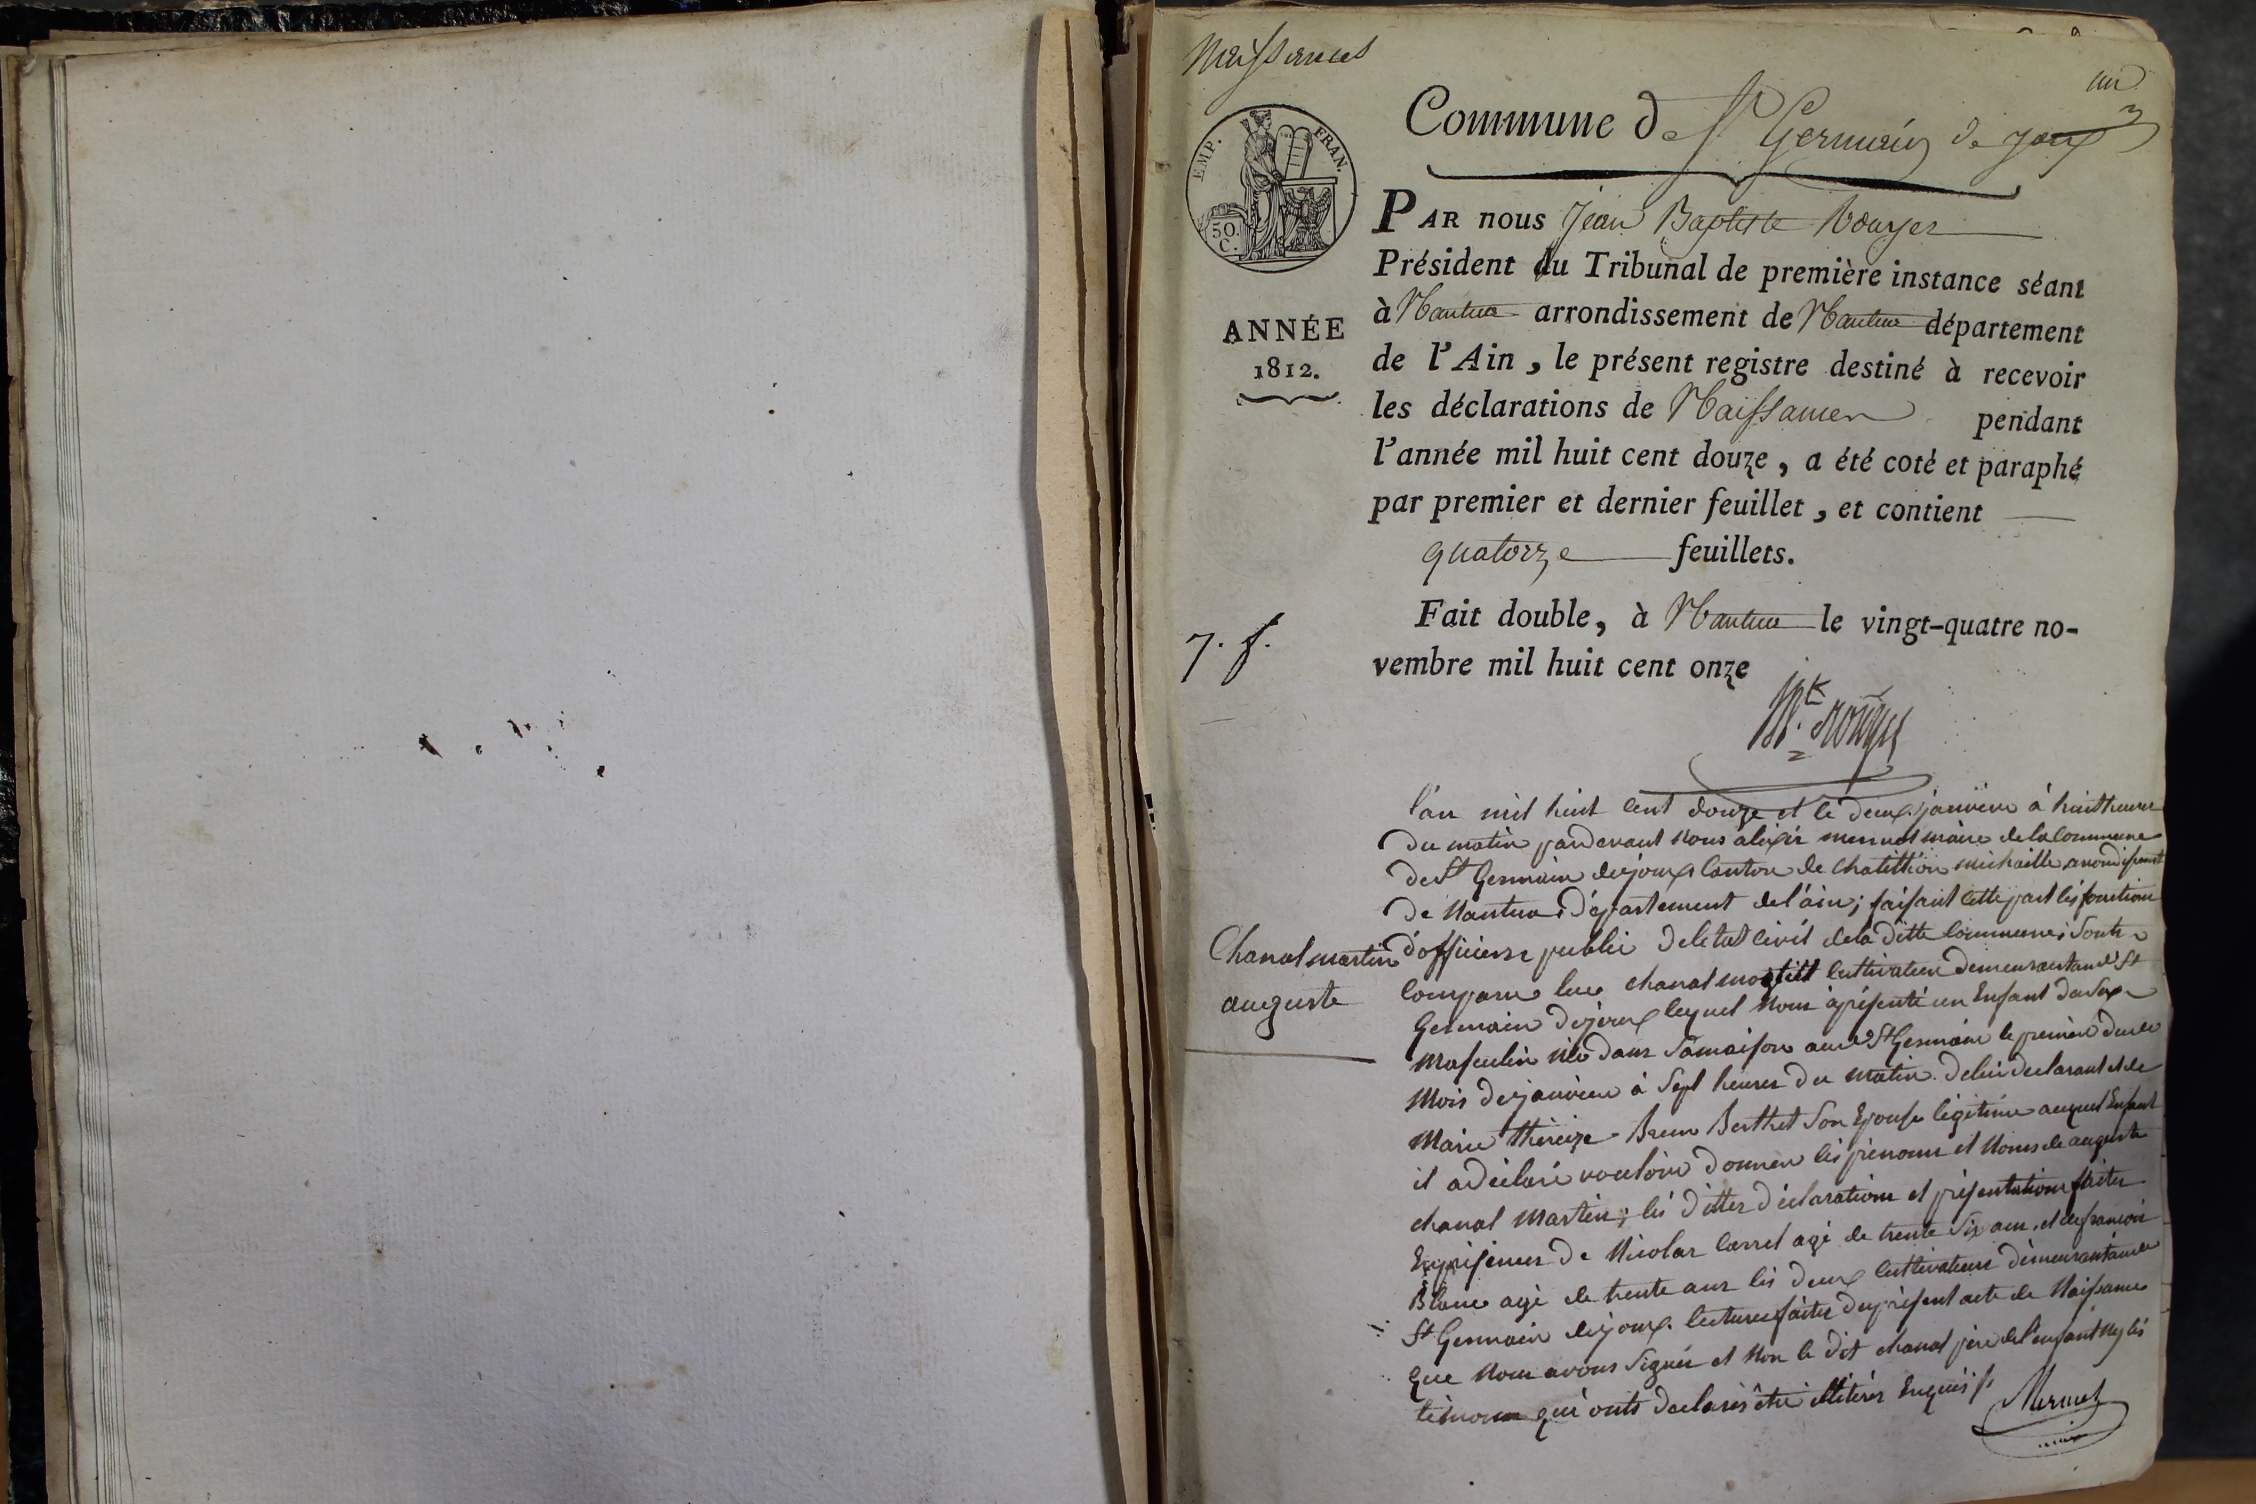 Naissances
un
Commune de St Germain de joux
EMP. FRAN.
50.
C.
PAR nous Jean Baptiste Rouyer
Président du Tribunal de première instance séant
à Nantua arrondissement de Nantua département
ANNÉE
1812.
de l'Ain, le présent registre destiné à recevoir
les déclarations de Naissances pendant
l'année mil huit cent douze, a été coté et paraphé
par premier et dernier feuillet, et contient
quatorze feuillets.
Fait double, à Nantua le vingt-quatre no-
vembre mil huit cent onze
7. f.
l'an mil huit cent douze et le deux janvier à huit heures
du matin pardevant nous alexis mermet maire de la commune
de St Germain dejoux Canton de Chatillion michaille arrondissement
de Nantua, département de l'ain; faisant cette part les fonctions
d'officiers public deletat civil dela ditte commune; s'ont
Chanal martin
auguste
comparu luc chanal martin cultivateur demeurant aud St
Germain dejoux lequel nous àprésenté un Enfant du sexe
masculin né dans sa maison aud St Germain le premier dud
mois dejanvier à sept heures du matin. de lui declarant et de
Marie théreize Brun Berthet son Epouse légitime auquel Enfant
il adéclaré vouloir donner lés prénoms et Noms de auguste
chanal Martin; lés dittes déclarations et présentations faites
En présence de Nicolas Carrel agé de trente six ans, et de francois
Blanc agé de trente ans lés deux cultivateurs démeurant aud
St Germain dejoux. lecture faites du présent acte de Naissance
que Nous avons signés et Non le dit chanal père de l'enfant Ny lés
témoins qui onts declarés être illitérés Enquis
Mermet
maire